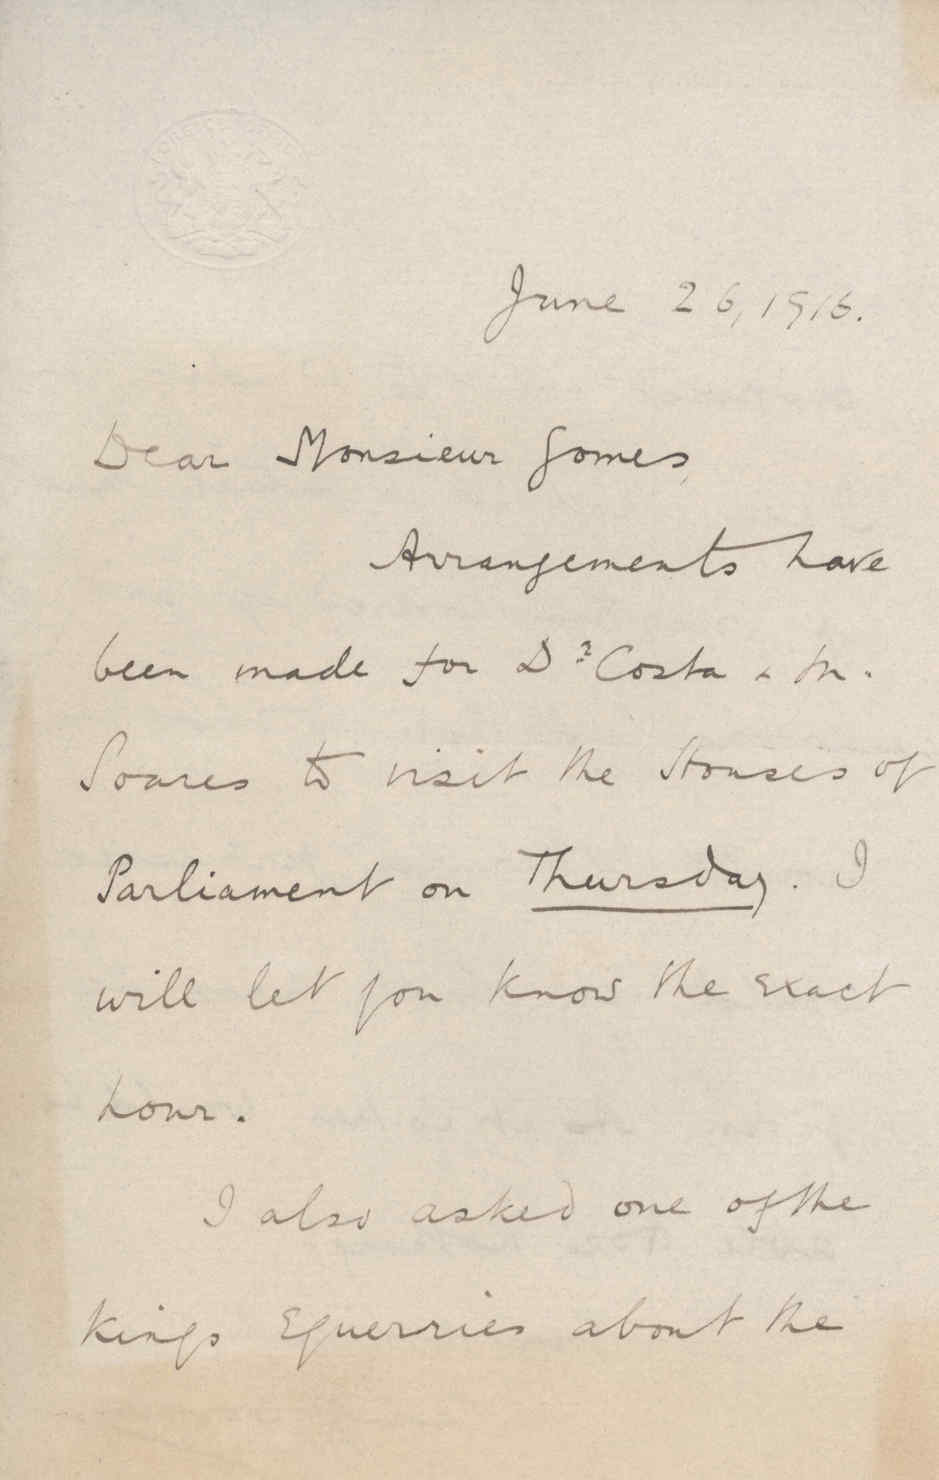 FOREIGN OFFICE
June 26, 1916.
Dear Monsieur Gomes,
Arrangements have
been made for Dr Costa & M.
Soares to visit the Houses of
Parliament on Thursday. I
will let you know the exact
hour.
I also asked one of the
Kings Equerries about the